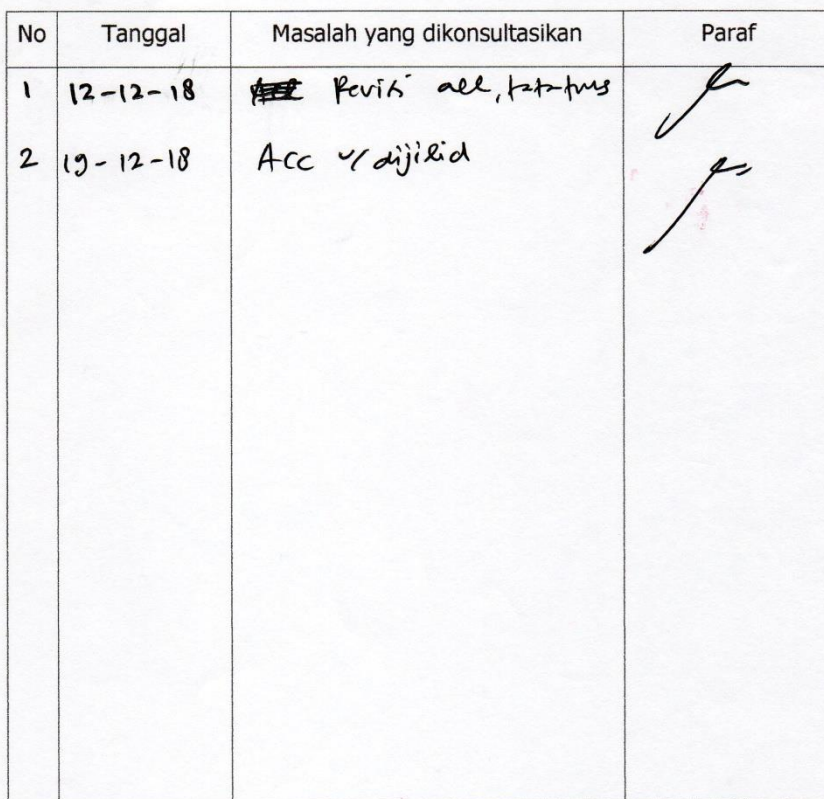 No Tanggal Masalah yang dikonsultasikan Paraf
1 12-12-18 Revisi all, tata tulis
2 19-12-18 Acc u/ dijilid